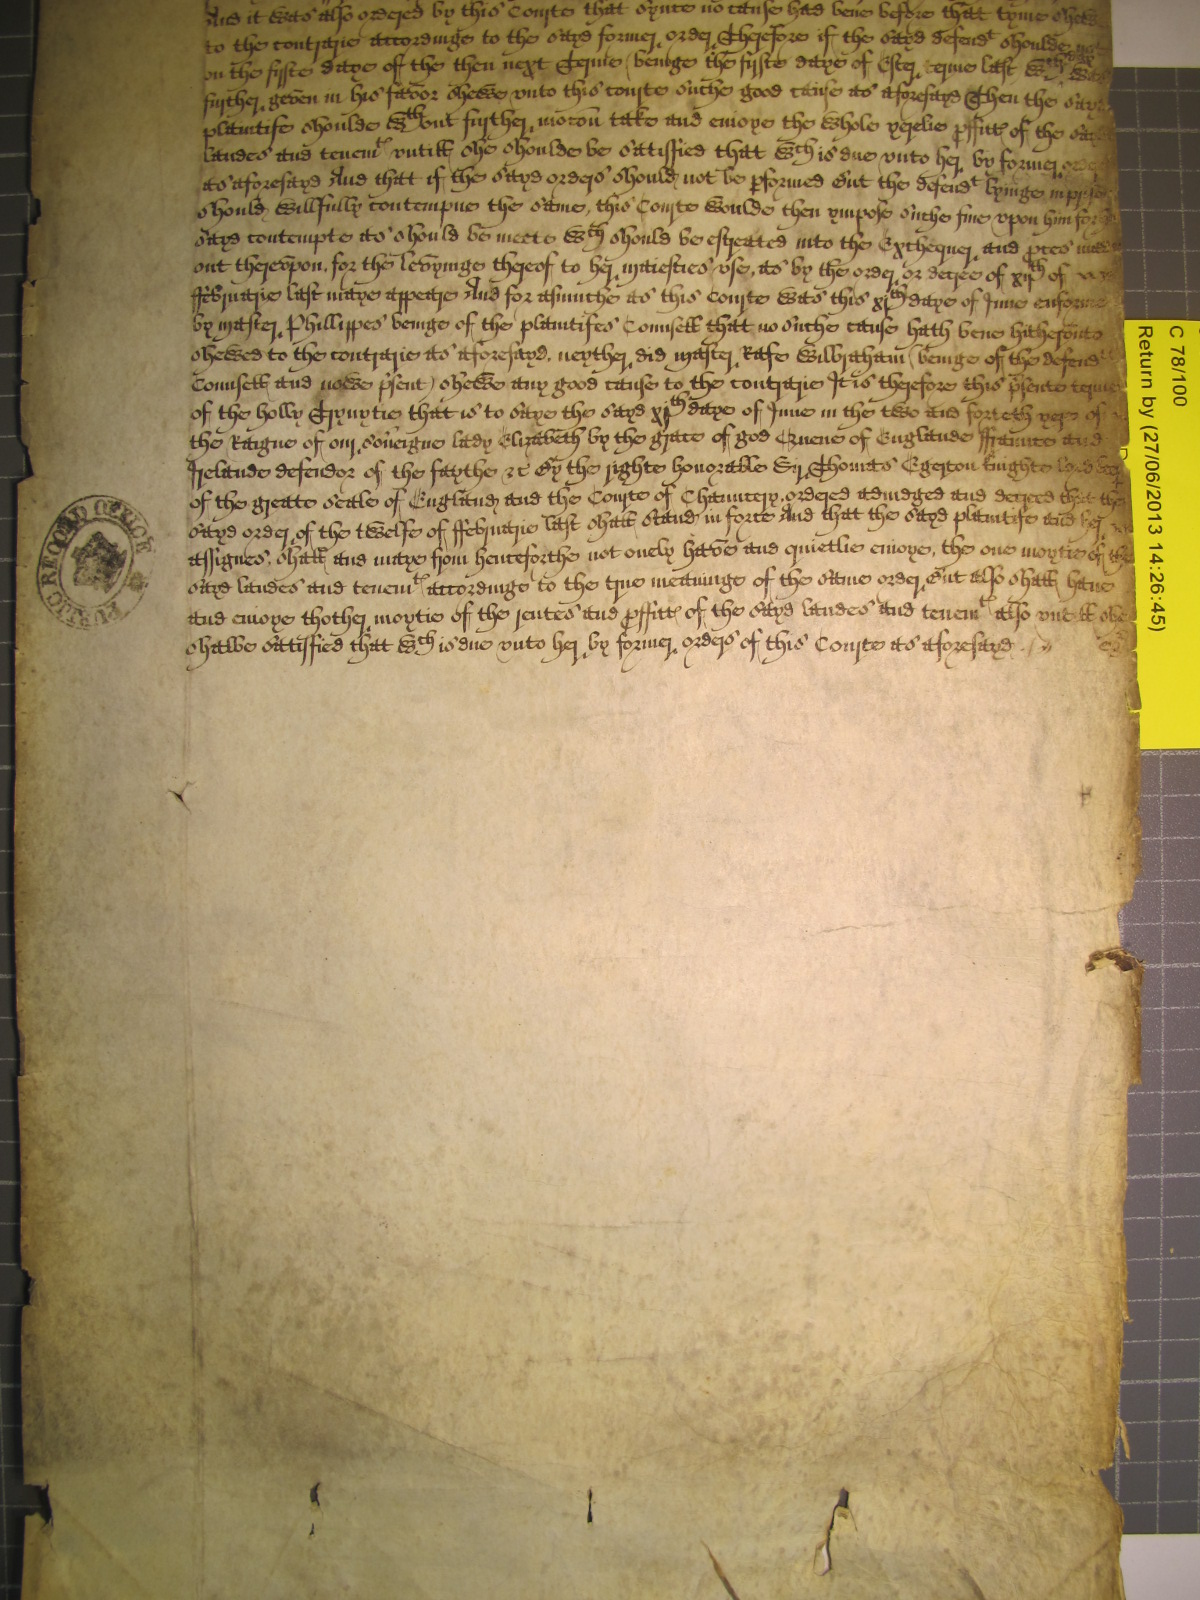 And it was also ordered by this Courte that synce no cause had bene before that tyme shewed
to the contrarie accordinge to the sayd former order, Therefore if the sayd defendt shoulde not
on the fyrste daye of the then next Terme (beinge the fyrste daye of Ester terme last wch was
further geven in his favor shewe unto this courte suche good cause as aforesayd Then the sayd
plaintife shoulde wthout further mocon take and enioye the whole yerelie pffittes of the sayd
landes and tenemtes untill she shoulde be satisfied that wch is due unto her by former orders
as aforesayd And that if the sayd orders should not be pformed but the defendt lyinge in prison
should willfully contempne the same, this Courte woulde then ympose suche fine upon him for
sayd contempte as should be meete wch should be estreated into the Exchequer and proces made
out thereupon, for the levyinge thereof to her maiesties use, as by the order or decree of xijth of
ffebruarie last maye appeare And for asmuche as this Courte was this xjth daye of June enformed
by master Phillippes beinge of the plaintifes Counsell that no suche cause hath bene hitherunto
shewed to the contrarie as aforesayd, neyther did master Rafe Wilbraham (beinge of the defendtes
Counsell and nowe psent) shewe any good cause to the contrarie It is therefore this psente terme
of the holly Trynytie that is to saye the sayd xjth daye of June in the two and forteth yere of
the Raigne of our soveigne lady Elizabeth by the grace of god Quene of Englande ffraunce and
Irelande defendor of the faythe &c By the righte honorable Sr Thomas Egerton knighte lord keeper
of the greate seale of England and the Courte of Chauncery, ordered adiudged and decreed that the
sayd order of the twelfe of ffebruarie last shall stand in force And that the sayd plaintife and her
assignes, shall and maye from henceforthe not onely have and quietlie enioye, the one moytie of the
sayd landes and tenemtes accordinge to the true meaninge of the same order, But also shall have
and enioye thother moytie of the rentes and pffittes of the sayd landes and tenemtes also untill she
shalbe satisfied that wch is due unto her by former orders of this Courte as aforesayd
PUBLIC RECORD OFFICE
C 78/100
Return by (27/06/2013 14:26:45)